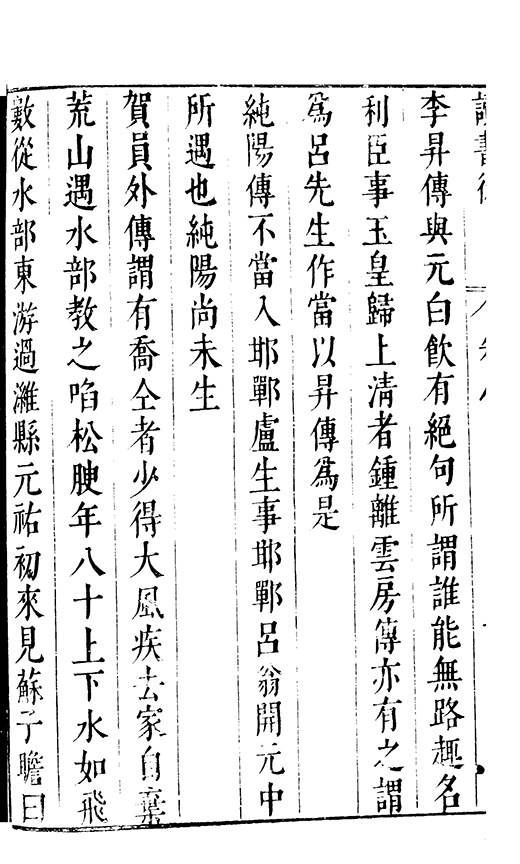 讀書後
李昇傳與元白飲有絕句所謂誰能無路趣名
利臣事玉皇歸上清者鍾離雲房傳亦有之謂
爲呂先生作當以昇傳爲是
純陽傳不當入邯鄲盧生事邯鄲呂翁開元中
所遇也純陽尚未生
賀員外傳謂有喬仝者少得大風疾去家自棄
荒山遇水部教之啗松腴年八十上下水如飛
數從水部東游過濰縣元祐初來見蘇子瞻曰